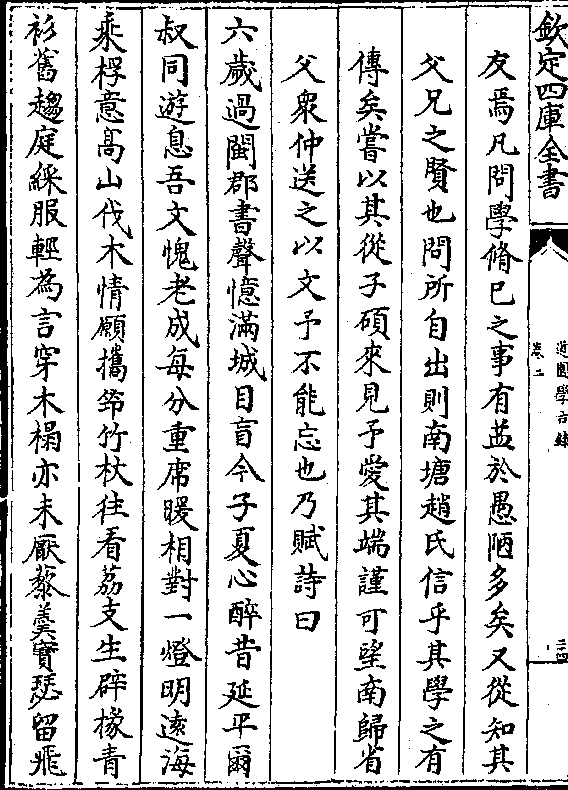 欽定四庫全書
道園學古錄
卷二
三四
友焉凡問學脩己之事有益於愚陋多矣又從知其
父兄之賢也問所自出則南塘趙氏信乎其學之有
傳矣嘗以其從子碩來見予愛其端謹可望南歸省
父衆仲送之以文予不能忘也乃賦詩曰
六歲過閩郡書聲憶滿城目盲今子夏心醉昔延平爾
叔同遊息吾文愧老成每分重席暖相對一燈明遠海
乘桴意髙山伐木情願攜筇竹杖往看荔支生辟掾青
衫舊趨庭綵服輕為言穿木榻亦未厭藜羮寶瑟留飛